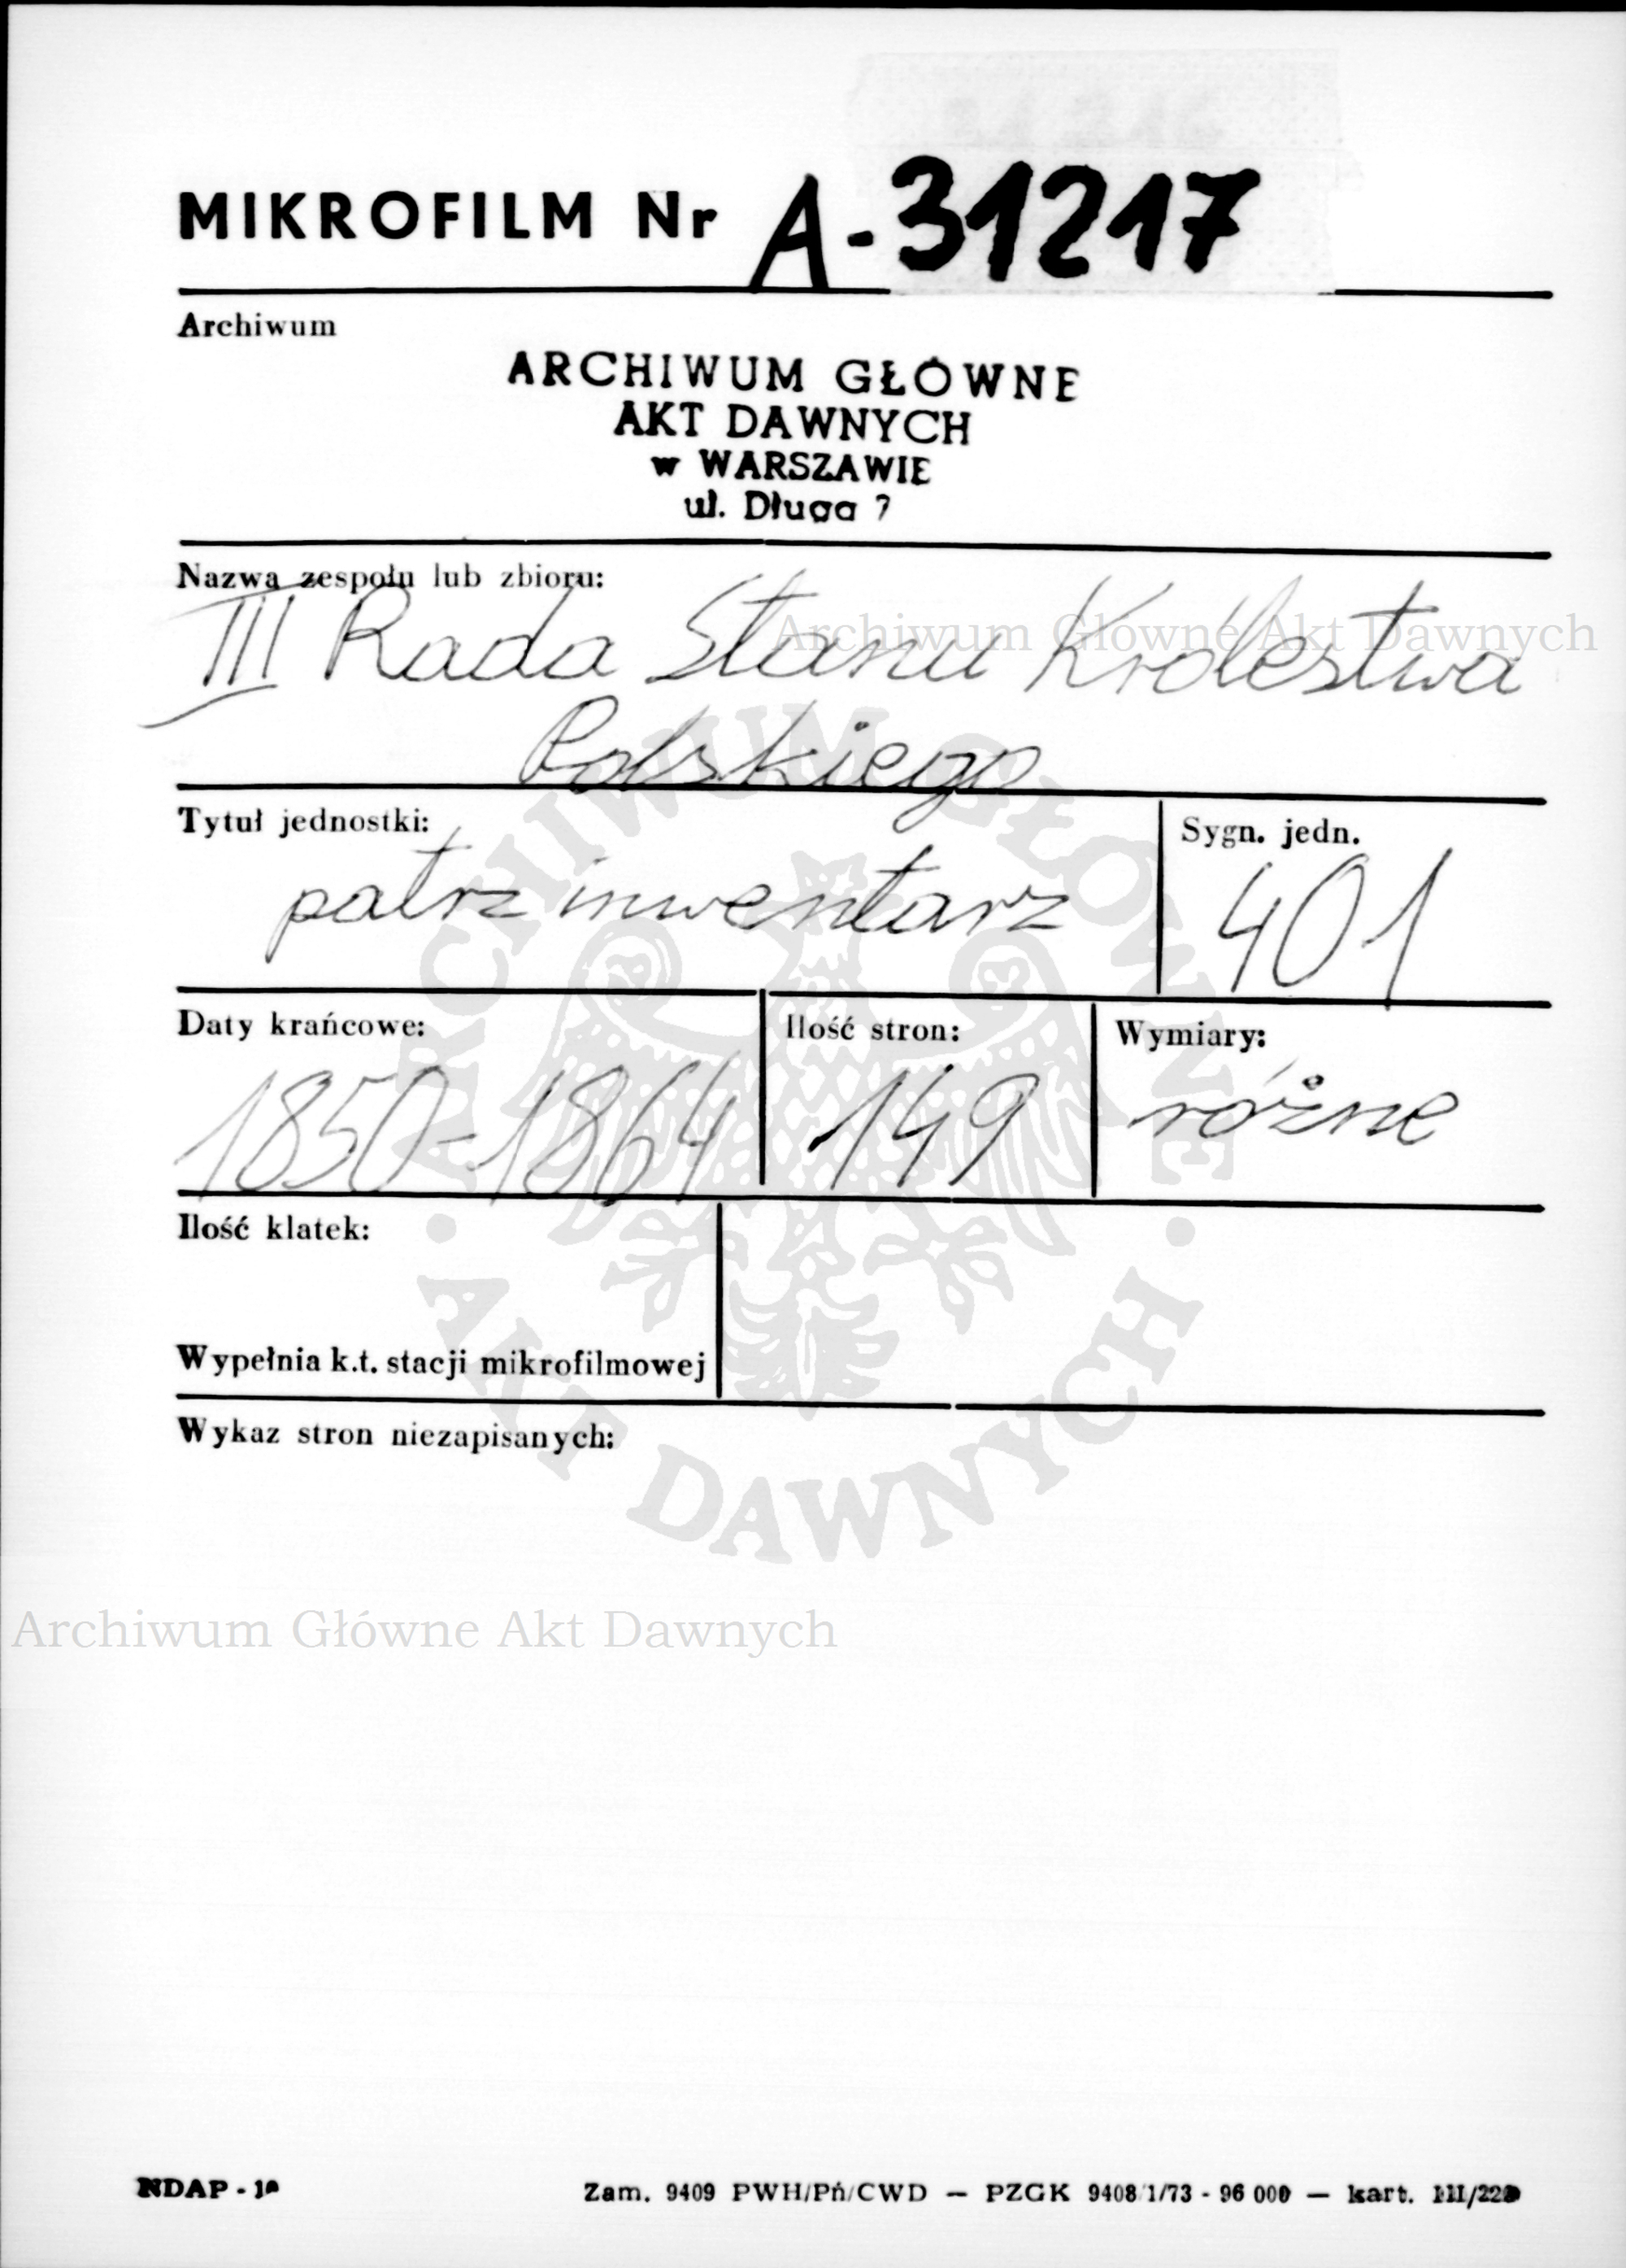 MIKROFILM Nr A-31217
Archiwum
ARCHIWUM GŁÓWNE
AKT DAWNYCH
w WARSZAWIE
ul. Długa 7
Nazwa zespołu lub zbioru:
III Rada Stanu Królestwa
Polskiego
Archiwum Główne Akt Dawnych
Tytuł jednostki:
patrz inwentarz
Sygn. jedn.
401
Daty krańcowe:
1850-1864
Ilość stron:
149
Wymiary:
różne
Ilość klatek:
Wypełnia k.t. stacji mikrofilmowej
Wykaz stron niezapisanych:
ARCHIWUM GŁÓWNE
· AKT DAWNYCH ·
Archiwum Główne Akt Dawnych
NDAP -
Zam. 9409 PWH/Pń/CWD — PZGK 9408/1/73 - 96 000 — kart.